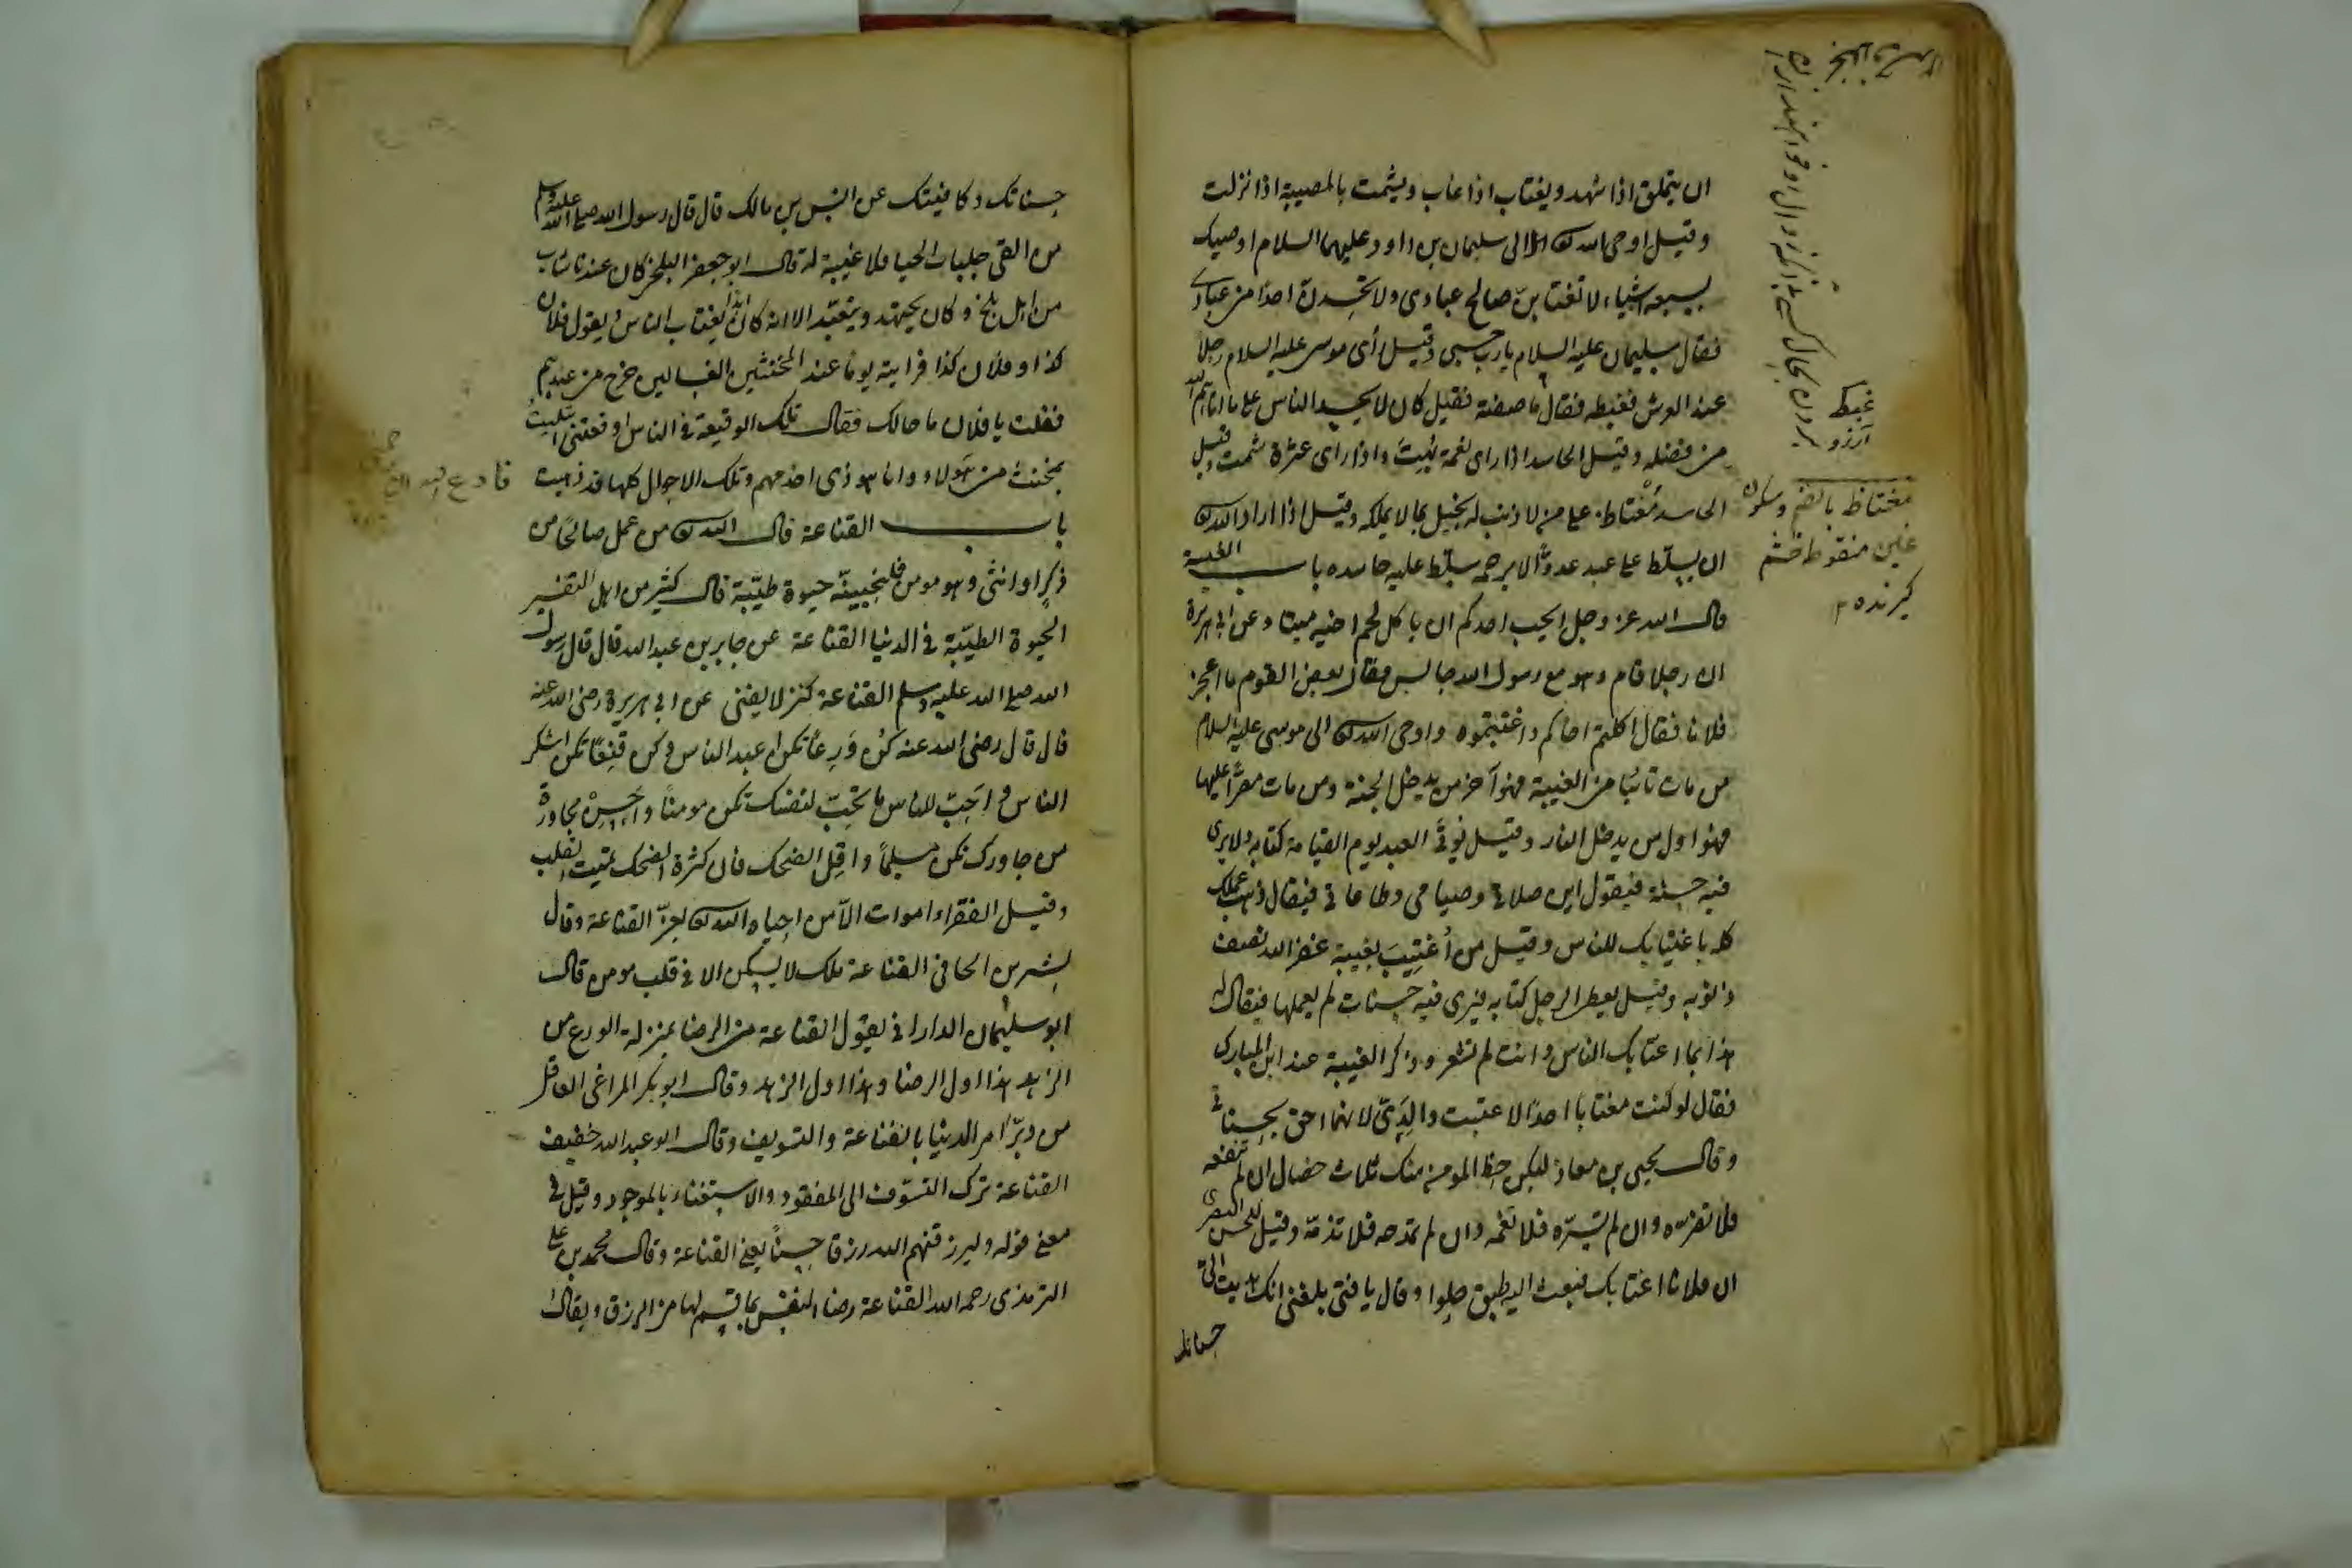 ان يتملق اذا شهد ويغتاب اذا غاب ويشمت بالمصيبة اذا نزلت
وقيل اوحى الله الى سليمان بن داود عليهما السلام اوصيك
بسبعة اشياء لا تغتابن صالح عبادى ولا تحسدن احدا من عبادى
فقال سليمان عليه السلام يا رب حسبى وقيل رأى موسى عليه السلام رجلا
عند العرش فغبطه فقال ما صفته فقيل كان لا يحسد الناس على ما اتاهم الله
من فضله وقيل الحاسد اذا راى نعمة بهت واذا راى عثرة شمت وقيل
الحاسد مغتاظ على من لا ذنب له بخيل بما لا يملكه وقيل اذا اراد الله
ان يسلّط على عبد عدوّا لا يرحمه سلّط عليه حاسده باب الغيبة
قال الله عز وجل ايحب احدكم ان ياكل لحم اخيه ميتا وعن ابى هريرة
ان رجلا قام وهو مع رسول الله جالس فقال بعض القوم ما اعجز
فلانا فقال اكلتم اخاكم واغتبتموه واوحى الله الى موسى عليه السلام
من مات تائبا من الغيبة فهو آخر من يدخل الجنة ومن مات مصرّا عليها
فهو اول من يدخل النار وقيل يؤتى العبد يوم القيامة كتابه ولا يرى
فيه حسنة فيقول اين صلاتى وصيامى وطاعاتى فيقال ذهب عملك
كله باغتيابك للناس وقيل من اُغتيبَ بغيبة غفر الله نصف
ذنوبه وقيل يعطى الرجل كتابه فيرى فيه حسنات لم يعملها فيقال له
هذا بما اغتابك الناس وانت لم تشعر وذكر الغيبة عند ابن المبارك
فقال لو كنت مغتابا احدًا لاغتبت والدىّ لانهما احق بحسناتى
وقال يحيى بن معاذ ليكن حظ المومن منك ثلاث خصال ان لم تنفعه
فلا تضرّه وان لم تسرّه فلا تغمه وان لم تمدحه فلا تذمّه وقيل للحسن البصرى
ان فلانا اغتابك فبعث اليه طبق حلوا وقال يا فتى بلغنى انك اهديت الىّ
حسناتك
غبطه
آرزو
مغتاظ بالضم وسكون
غين منقوطه خشم
كيرنده
حسناتك وكافيتك عن انس بن مالك قال قال رسول الله صلى الله عليه وسلم
من القى جلباب الحيا فلا غيبة له قال ابو جعفر البلخى كان عندنا شاب
من اهل بلخ وكان يجتهد ويتعبّد الا انه كان ابدا يغتاب الناس ويقول فلان
كذا وفلان كذا فرايته يوما عند المخنثين الغسالين خرج من عندهم
فقلت يا فلان ما حالك فقال تلك الوقيعة فى الناس اوقعتنى ابتليتُ
بمخنث من هولاء وانا هو ذى اخدمهم وتلك الاحوال كلها قد ذهبت
باب القناعة قال الله من عمل صالحًا من
ذكرٍ او انثى وهو مومن فلنحيينّه حيوة طيّبة قال كثير من اهل التفسير
الحيوة الطيّبة فى الدنيا القناعة عن جابر بن عبد الله قال قال رسول
الله صلى الله عليه وسلم القناعة كنز لا يفنى عن ابى هريرة رضى الله عنه
قال قال رضى الله عنه كن وَرِعًا تكن اعبد الناس وكن قنِعًا تكن اشكر
الناس و احِبّ للناس ما تحبّ لنفسك تكن مومنًا واَحسِنْ مجاورة
من جاورك تكن مسلمًا واقِل الضحك فان كثرة الضحك تميت القلب
وقيل الفقراء اموات الاّ من احياه الله بعزّ القناعة وقال
بشر بن الحافى القناعة ملك لا يسكن الا فى قلب مومن قال
ابو سليمان الدارانى يقول القناعة من الرضا بمنزلة الورع من
الزهد هذا اول الرضا وهذا اول الزهد وقال ابو بكر المراغى العاقل
من دبّر امر الدنيا بالقناعة والتسويف وقال ابو عبد الله خفيف
القناعة ترك التشوّف الى المفقود والاستغناء بالموجود وقيل فى
معنى قوله وليرزقنهم الله رزقا حسنًا يعنى القناعة وقال محمد بن على
الترمذى رحمه الله القناعة رضاء النفس بما قسم لها من الرزق ويقال